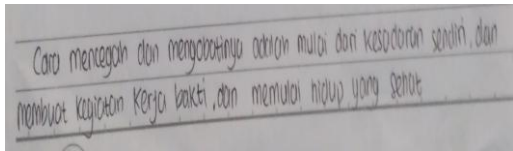 Cara mencegah dan mengobatinya adalah mulai dari kesadaran sendiri, dan
membuat kegiatan kerja bakti, dan memulai hidup yang sehat